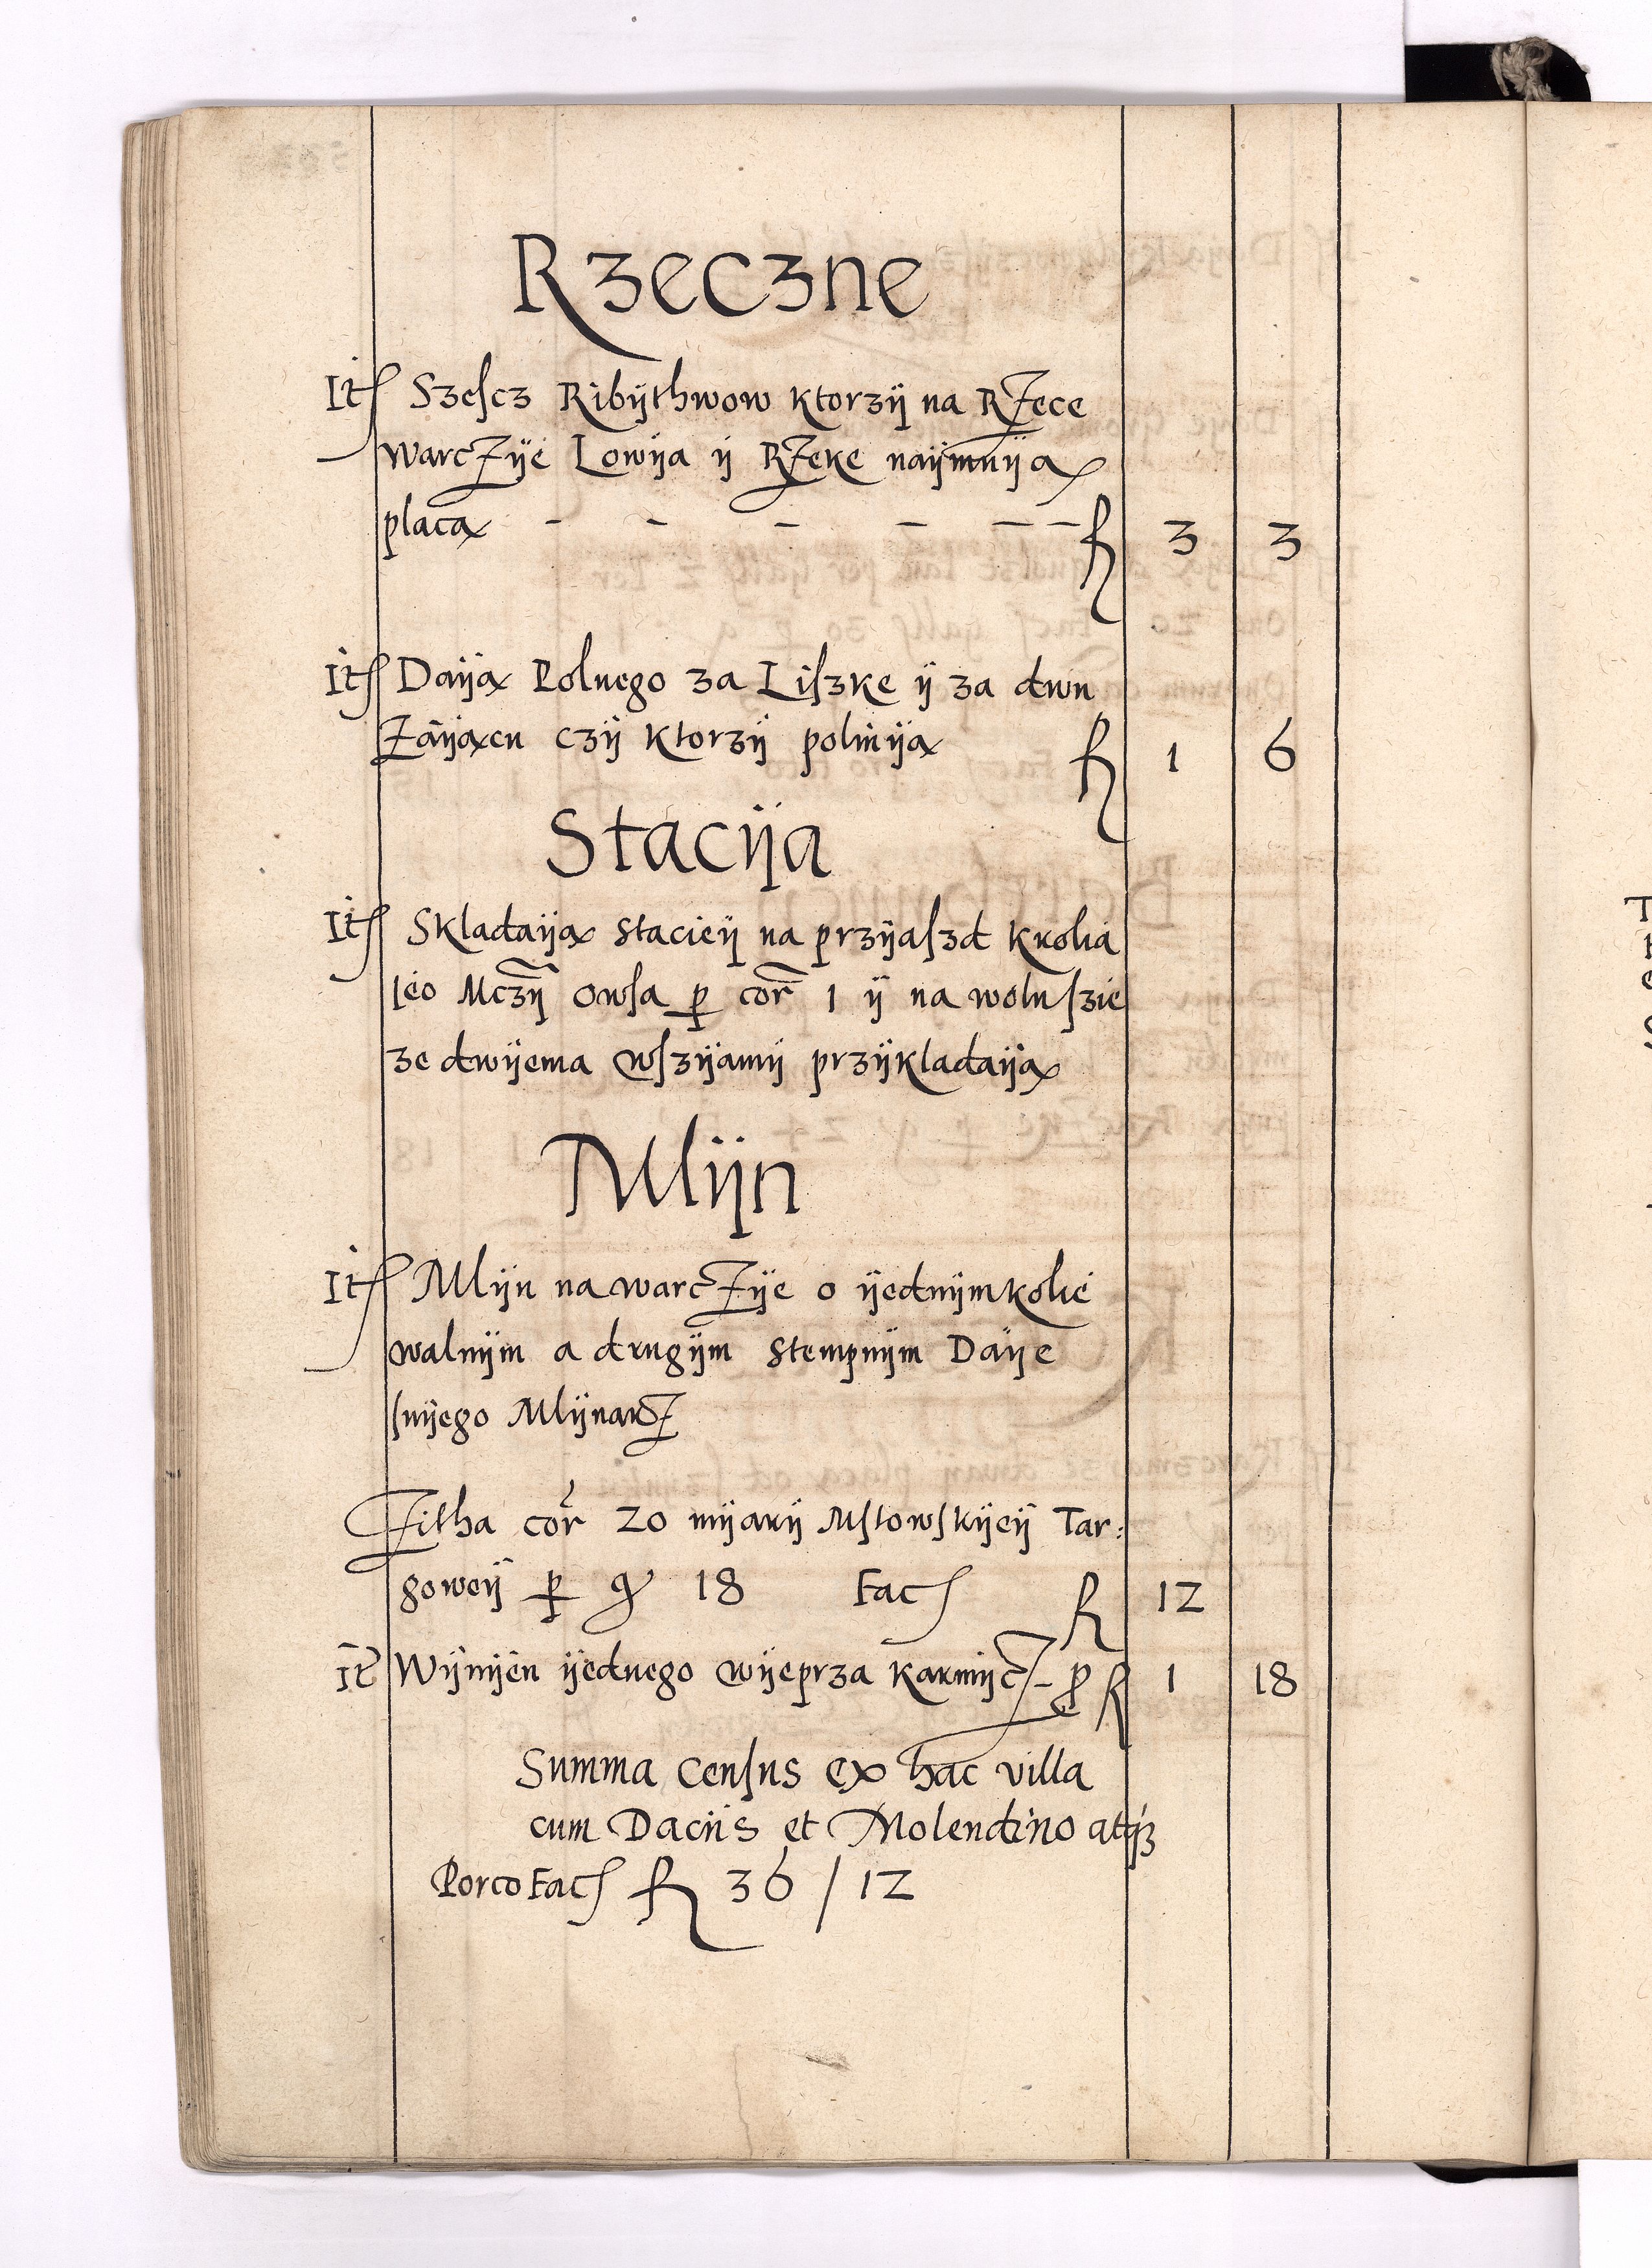 Rzeczne
Itſ Szeſcz Ribÿthwow Ktorzÿ na RƵece
WarcƵÿe Lowÿa ÿ RƵeke naÿmuÿą
placą - - - - - - fl 3 3
Itſ Daÿą Polnego za Liſzke ÿ za dwu
Ƶaÿącu czÿ Ktorzÿ polniÿą fl 1 6
Stacÿa
Itſ Skladaÿą Stacieÿ na przÿaſzd Krolia
Ieo Mczÿ Owſa ꝑ cor̃ 1 ÿ na woluſzie
ze dwÿema wſzÿamÿ przÿkladaÿą
Mlÿn
Itſ Mlÿn na warcƵÿe o ÿednÿm kolie
walnÿm a drugÿm Stempnÿm Daÿe
ſnÿego MlÿnarƵ
Ƶitha cor̃ 20 mÿarÿ Mſtowſkÿeÿ Tar:
goweÿ ꝑ gͬ 18 Facſ fl 12
It̃ Wÿmÿen ÿednego wÿeprza KarmÿcƵ - ꝓ fl 1 18
Summa Cenſus ex hac villa
cum Daciis et Molendino atqꝫ
Porco Facſ fl 36 / 12